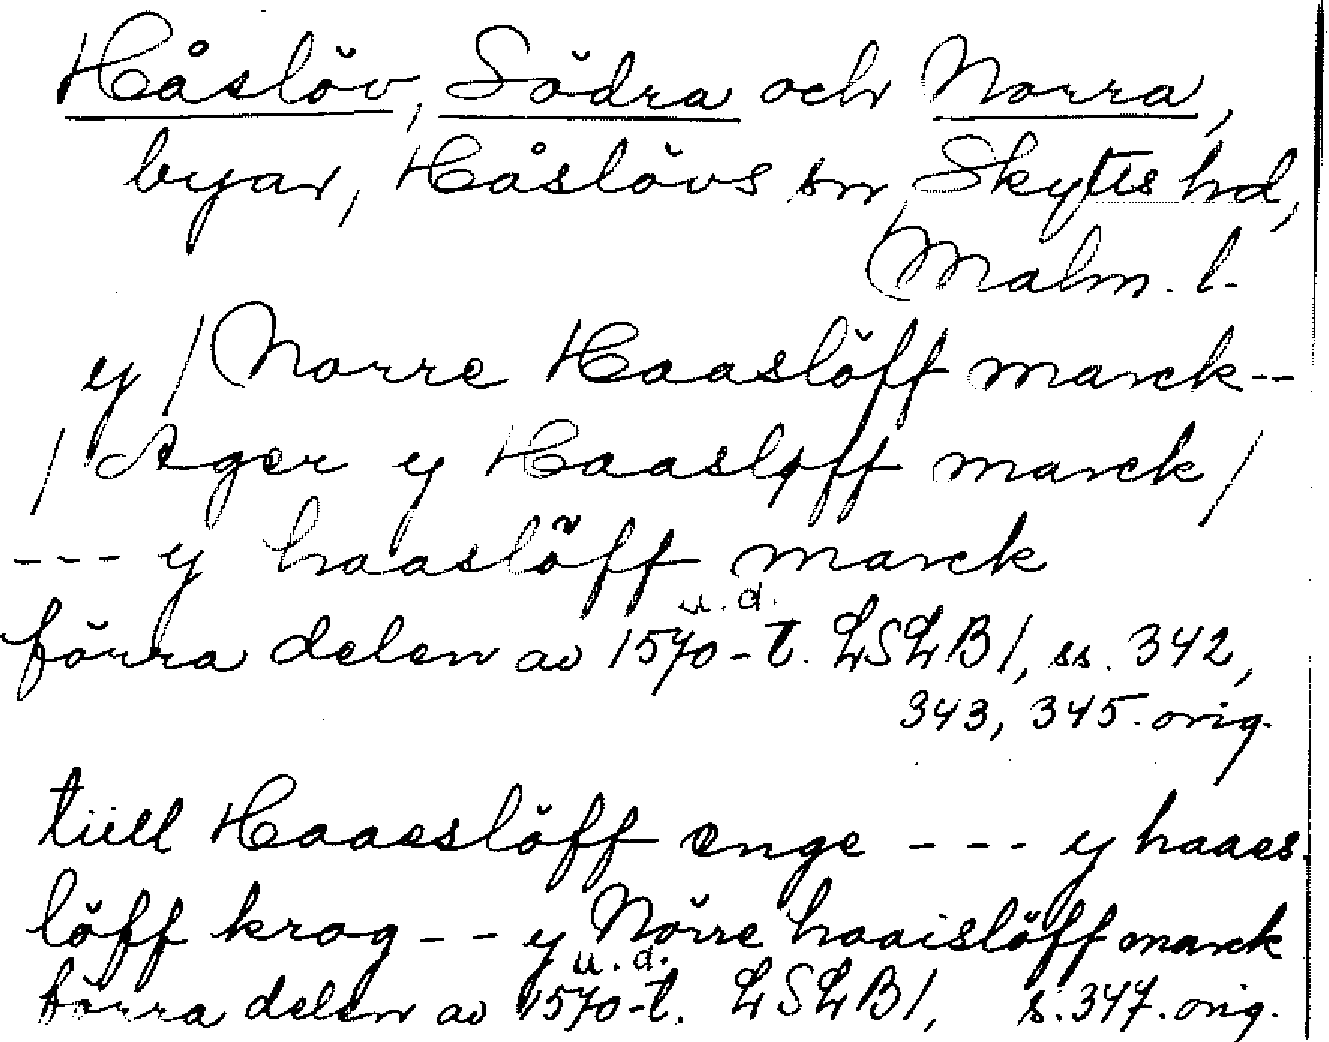 Håslöv, Södra och Norra,
byar, Håslövs sn, Skytts hd,
Malm. l.
y / Norre Haaslöff marck--
/ Ager y Haasløff marck /
--- y haaslöff marck
u. d.
förra delen av 1570-t. LSLB1, ss. 342,
343, 345. orig.
tiill Haaeslöff enge --- y haaes.
löff krog -- y Nörre haaislöff marck
u. d.
förra delen av 1570-t. LSLB1, s. 347. orig.